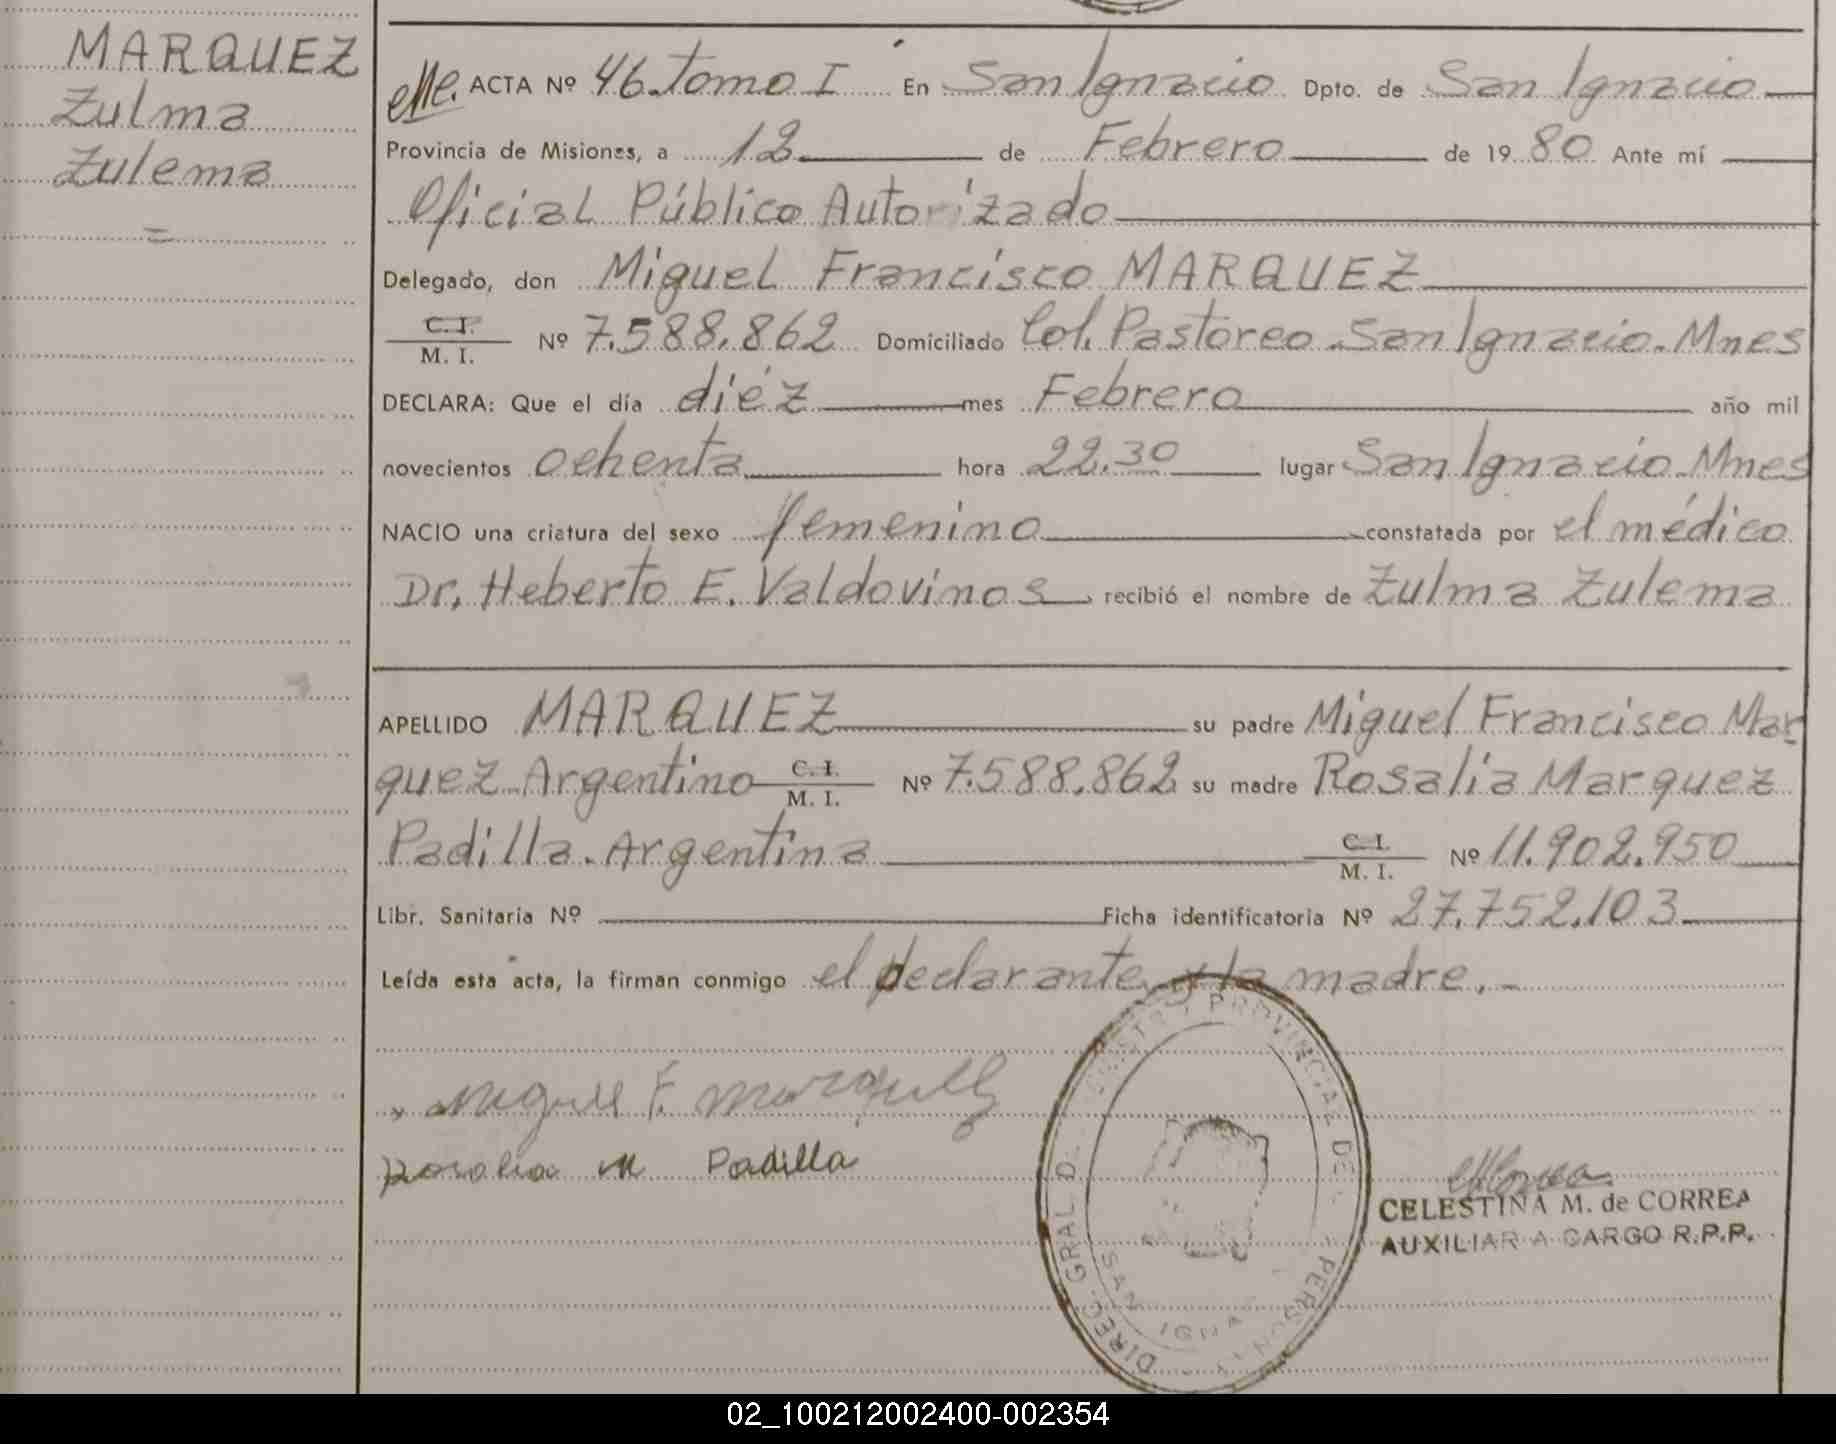 MARQUEZ
Zulma
Zulema
=
ACTA Nº 46. Tomo I En San Ignacio Dpto. de San Ignacio
Provincia de Misiones, a 12 de Febrero de 1980 Ante mí
Oficial Público Autorizado
Delegado, don Miguel Francisco MARQUEZ
C.I. / M.I. Nº 7.588.862 Domiciliado Col. Pastoreo. San Ignacio. Mnes
DECLARA: Que el día diéz mes Febrero año mil
novecientos ochenta hora 22.30 lugar San Ignacio. Mnes
NACIO una criatura del sexo femenino constatada por el médico
Dr. Heberto E. Valdovinos recibió el nombre de Zulma Zulema
APELLIDO MARQUEZ su padre Miguel Francisco Mar
quez Argentino C.I. / M.I. Nº 7.588.862 su madre Rosalia Marquez
Padilla. Argentina C.I. / M.I. Nº 11.902.950
Libr. Sanitaria Nº Ficha identificatoria Nº 27.752.103
Leída esta acta, la firman conmigo el declarante y la madre.-
Miguel F. Marquez
Rosalia M Padilla
DIREC. GRAL D PROVINCIAL DE
SAN
CELESTINA M. de CORREA
AUXILIAR A CARGO R.P.P.
02_100212002400-002354